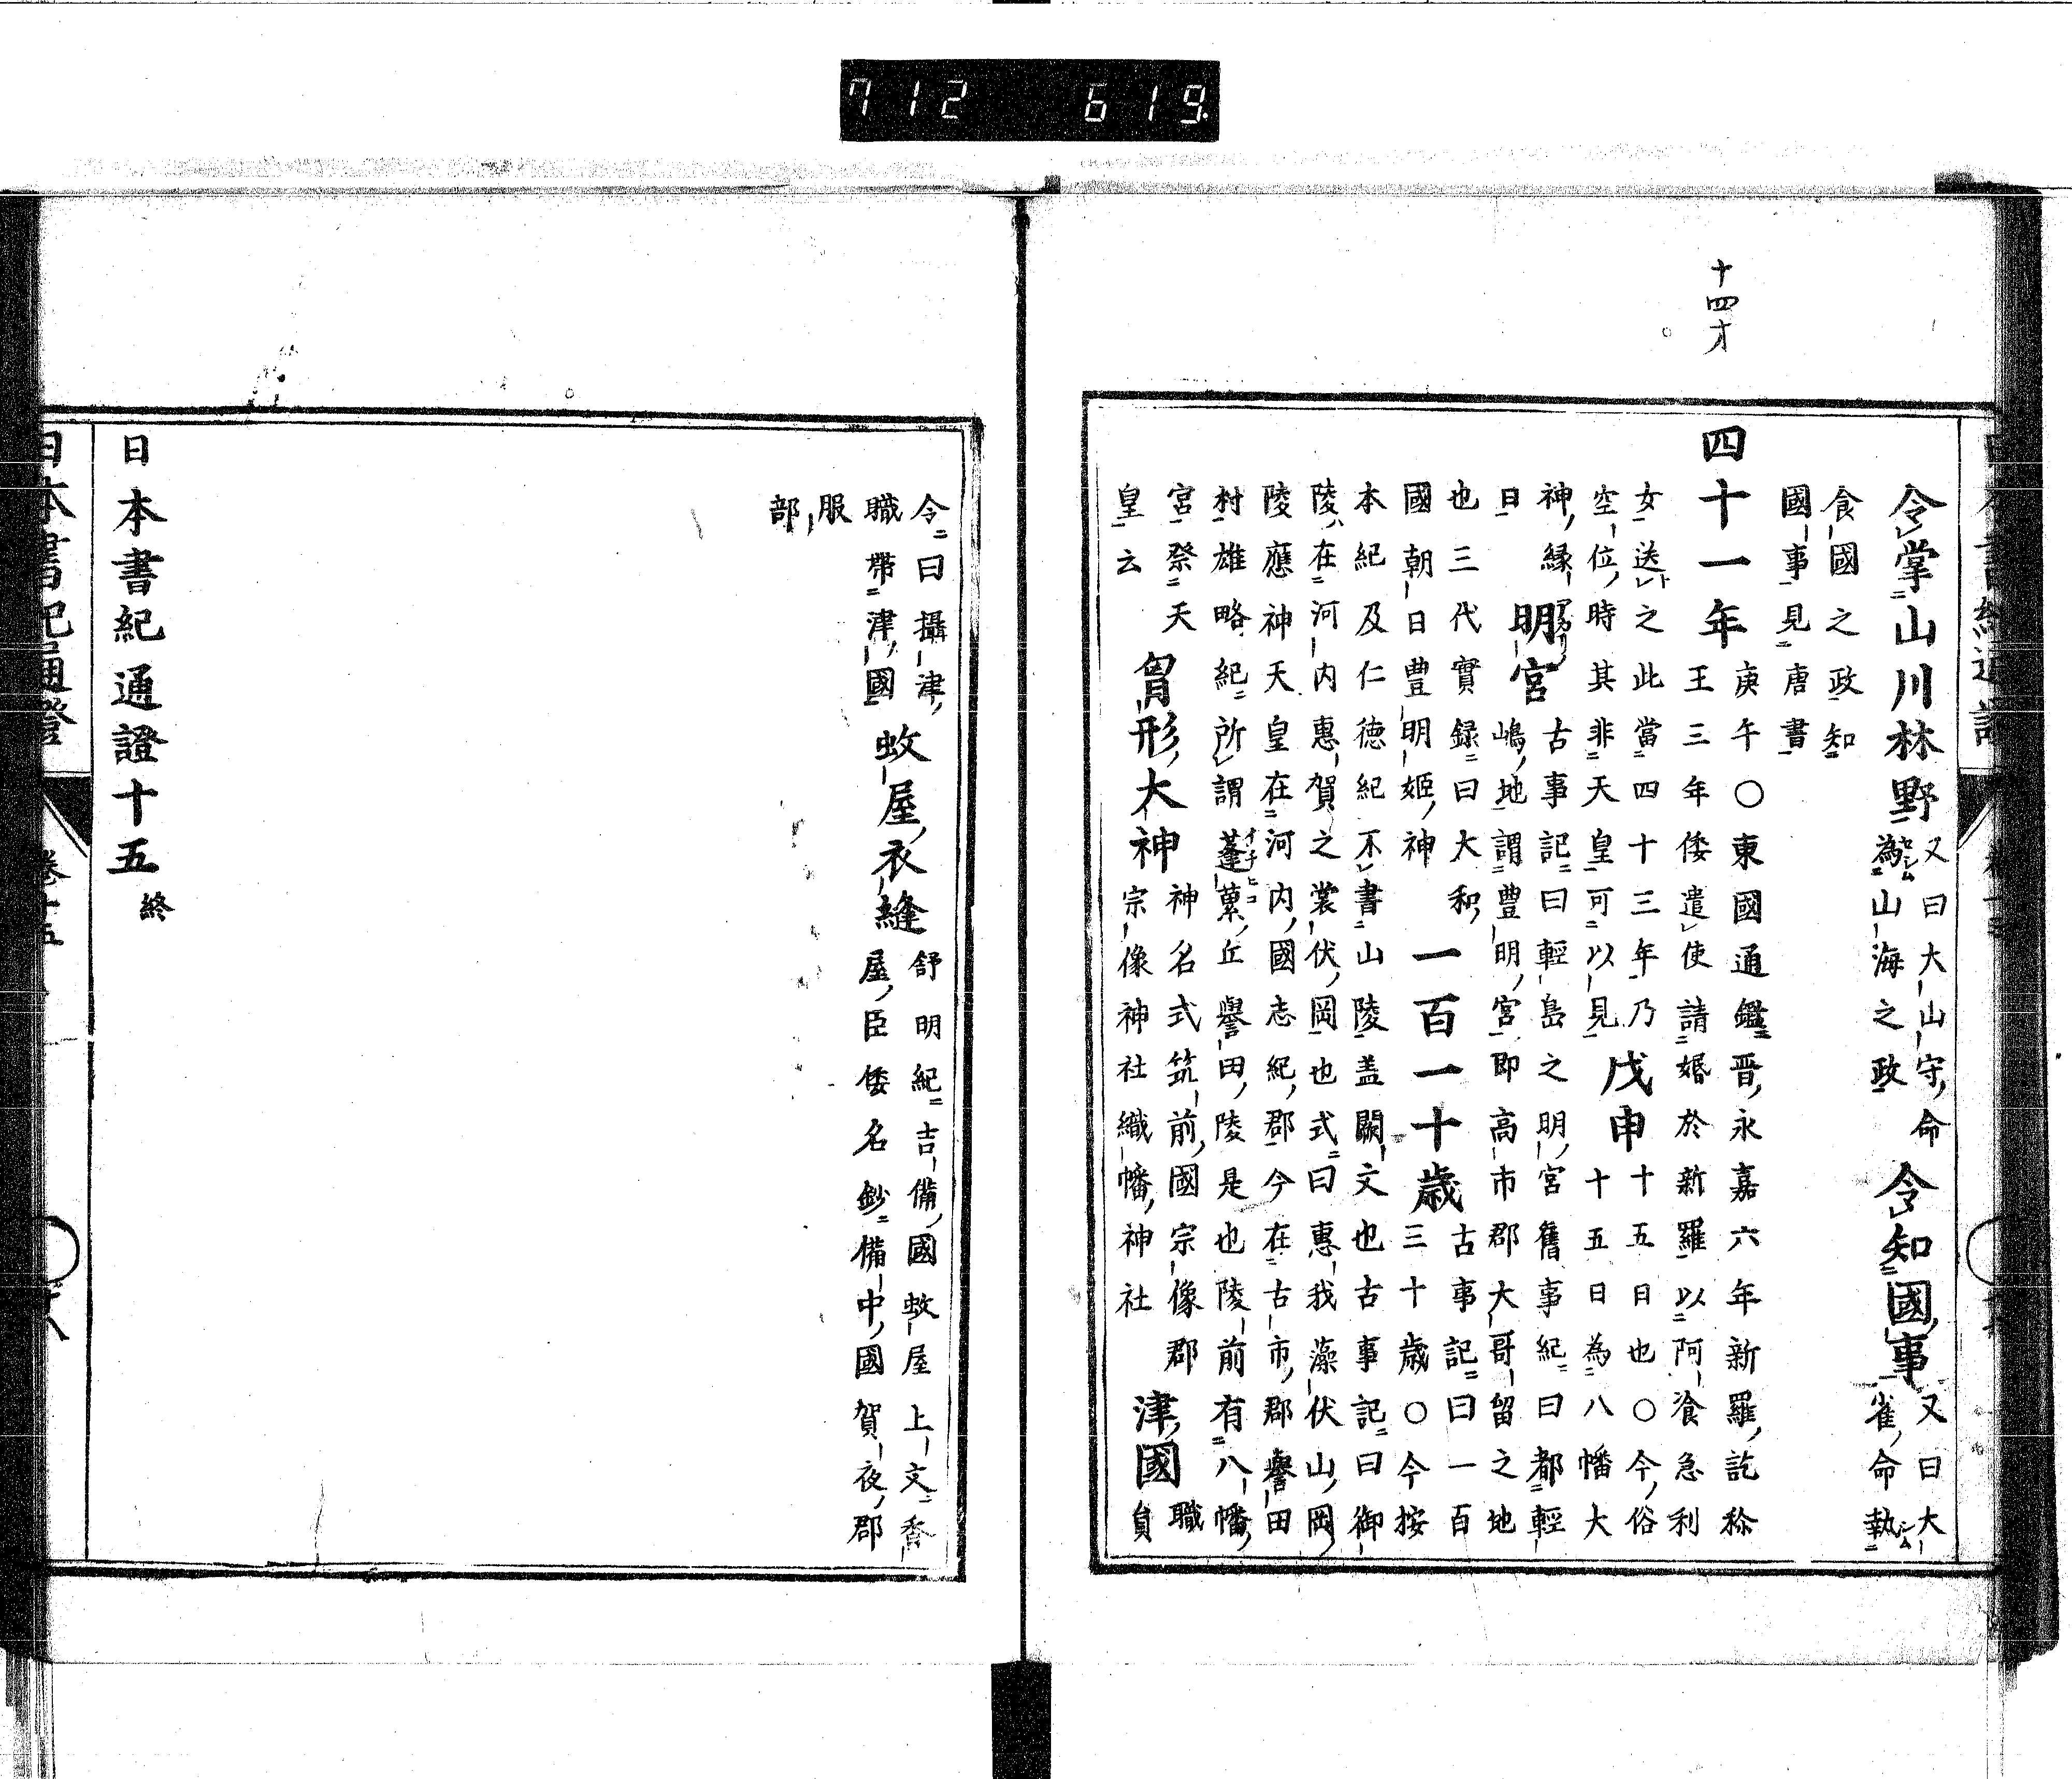 712 619
十四才
令掌山川林野
又曰大山守命
為山海之政
令知國事
又曰大
雀命執
食國之政知
國事見唐書
四十一年
庚午○東國通鑑晋永嘉六年新羅訖
王三年倭遣使請婚於新羅以阿飡急利
女送之此當四十三年乃
空位時其非天皇可以見
戊申
十五日也○今俗
十五日為八幡大
神縁
日
明宮
古事記曰輕島之明宮舊事紀曰都輕
嶋地謂豊明宮即高市郡大哥留之地
也三代實録曰大和
國朝日豊明姫神
一百一十歳
古事記曰一百
三十歳○今按
本紀及仁徳紀不書山陵盖闕文也古事記曰御
陵在河内惠賀之裳伏岡也式曰惠我藻伏山岡
陵應神天皇在河内國志紀郡今在古市郡譽田
村雄略紀所謂蓬蔂丘譽田陵是也陵前有八幡
宮祭天
皇云
胷形大神
神名式筑前國宗像郡
宗像神社織幡神社
津國
職
員
令曰攝津
職帶津國
蚊屋衣縫
舒明紀吉備國蚊屋上文香
屋臣倭名鈔備中國賀夜郡
服
部
日本書紀通證十五終
日本書紀通證
卷十五